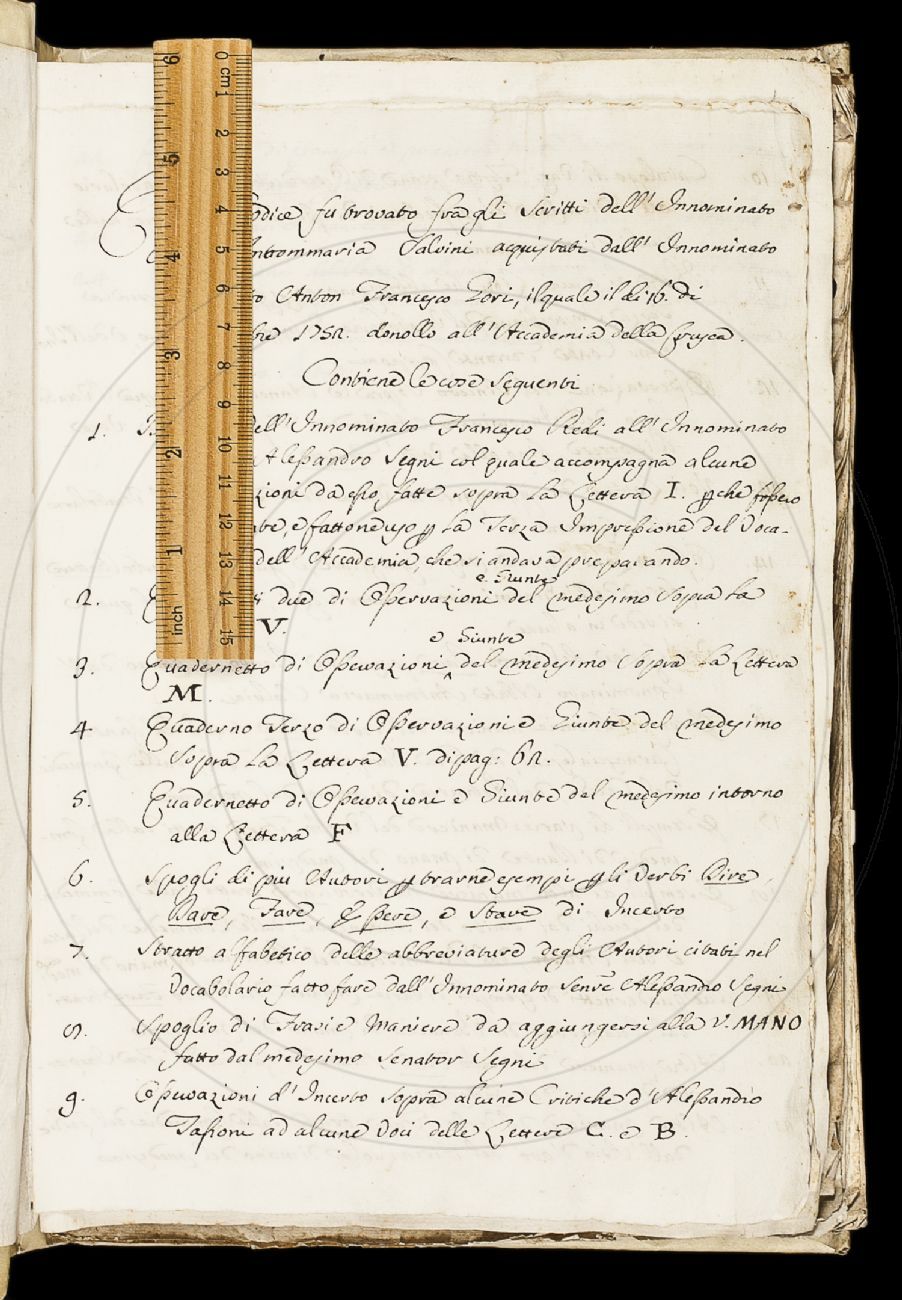 odice, fu trovato fra gli scritti dell' Innominato
ntommaria Salvini acquistati dall' Innominato
to Anton Francesco Gori, il quale il dì 16. di
bre 1752. donollo all' Accademia della Crusca.
Contiene le cose seguenti
1. dell' Innominato Francesco Redi all' Innominato
Alessandro Segni col quale accompagna alcune
zioni da esso fatte sopra la Lettera I. pche fossero
te, e fattone uso p la Terza Impressione del Voca-
dell' Accademia, che si andava preparando.
e Giunte
2. due di Osservazioni del medesimo sopra la
V.
e Giunte
3. Quadernetto di Osservazioni ^ del medesimo sopra la Lettera
M.
4 Quaderno Terzo di Osservazioni e Giunte del medesimo
sopra la Lettera V. di pag: 62.
5. Quadernetto di Osservazioni e Giunte del medesimo intorno
alla Lettera F
6. Spogli di piu Autori p trarne esempi p gli Verbi Dire,
Dare, Fare, Essere, e Stare di Incerto
7. Stratto alfabetico delle abbreviature degli Autori citati nel
Vocabolario fatto fare dall' Innominato Senre Alessandro Segni
8. Spoglio di Frasi e Maniere da aggiungersi alla V. MANO
fatto dal medesimo Senator Segni
9. Osservazioni d' Incerto sopra alcune Critiche d' Alessandro
Tassoni ad alcune Voci delle Lettere C. e B.
0 cm 1 2 3 4 5 6 7 8 9 10 11 12 13 14 15
inch 1 2 3 4 5 6